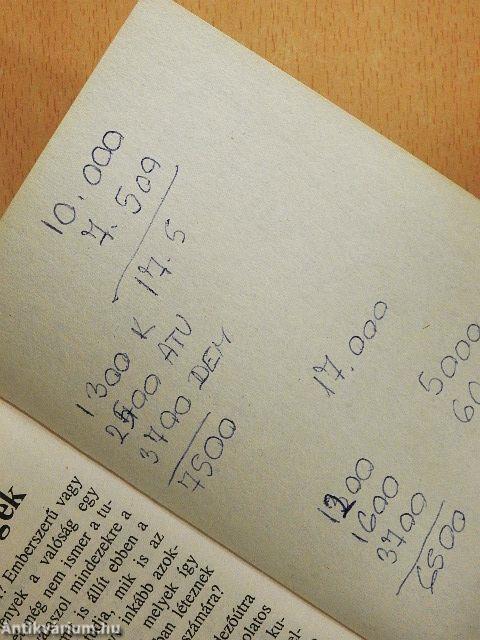 10.000
7.509
17.5
1300 K
2500 ATU
3700 DEM
7500
17.000
5000
60
1200
1600
3700
6500
gek
? Emberszerű vagy
nyek a valóság egy
ég nem ismer a tu-
szol mindezekre a
is állít ebben a
ia, mik is az
inkább azok-
melyek így
ban léteznek
számára?
dezőjtra
olatos
ku-
Antikvarium.hu
Antikvárium.hu